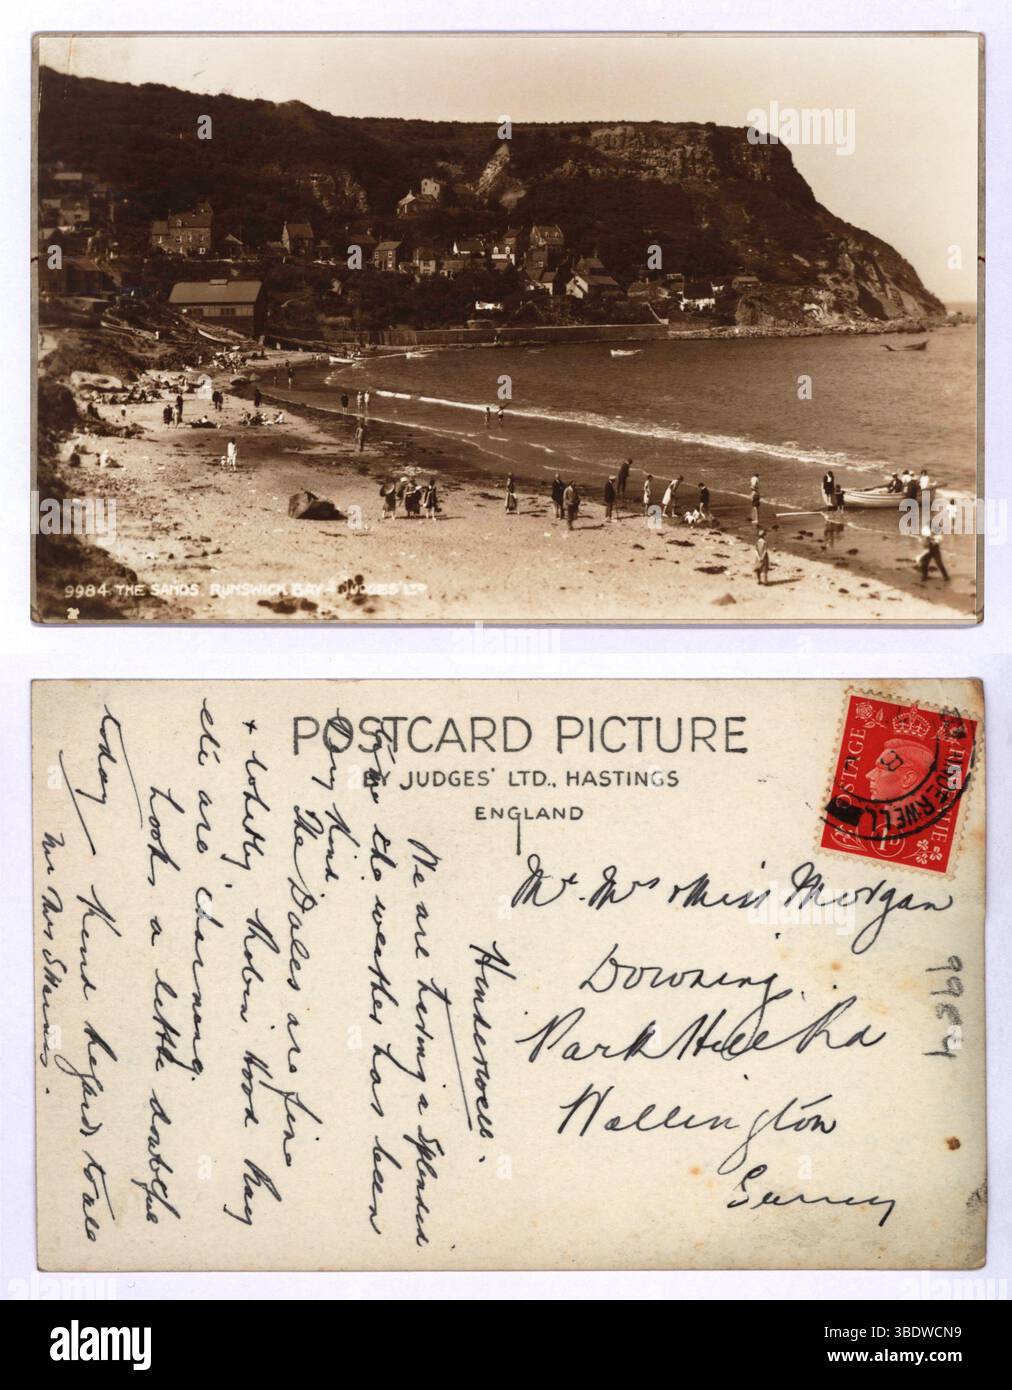 9984 THE SANDS. RUNSWICK BAY. JUDGES' LTD
POSTCARD PICTURE
BY JUDGES' LTD., HASTINGS
ENGLAND
POSTAGE
HINDERWELL
8
1D
Hinderwell.
We are having a splendid
time the weather has been
very kind
The Dales are fine
+ Whitby Robin Hood Bay
etc are charming.
Looks a little doubtful
today Kind Regards to all
Mr Mrs
Mr. Mrs & Miss Morgan
Downing,
Park Hill Rd
Wallington
Surrey
9984
alamy
Image ID: 3BDWCN9
www.alamy.com